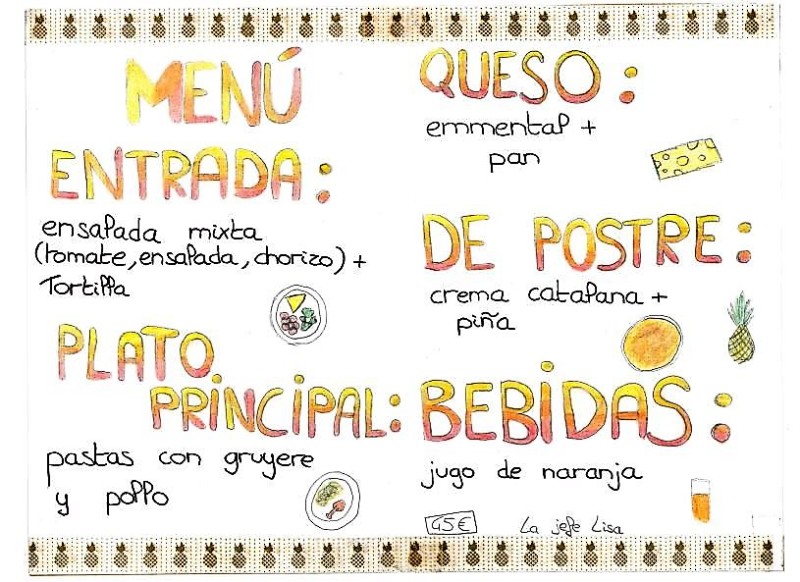 MENÚ
ENTRADA:
ensalada mixta
(tomate, ensalada, chorizo) +
Tortilla
PLATO
PRINCIPAL:
pastas con gruyere
y pollo
QUESO:
emmental +
pan
DE POSTRE:
crema catalana +
piña
BEBIDAS:
jugo de naranja
45€ La jefe Lisa